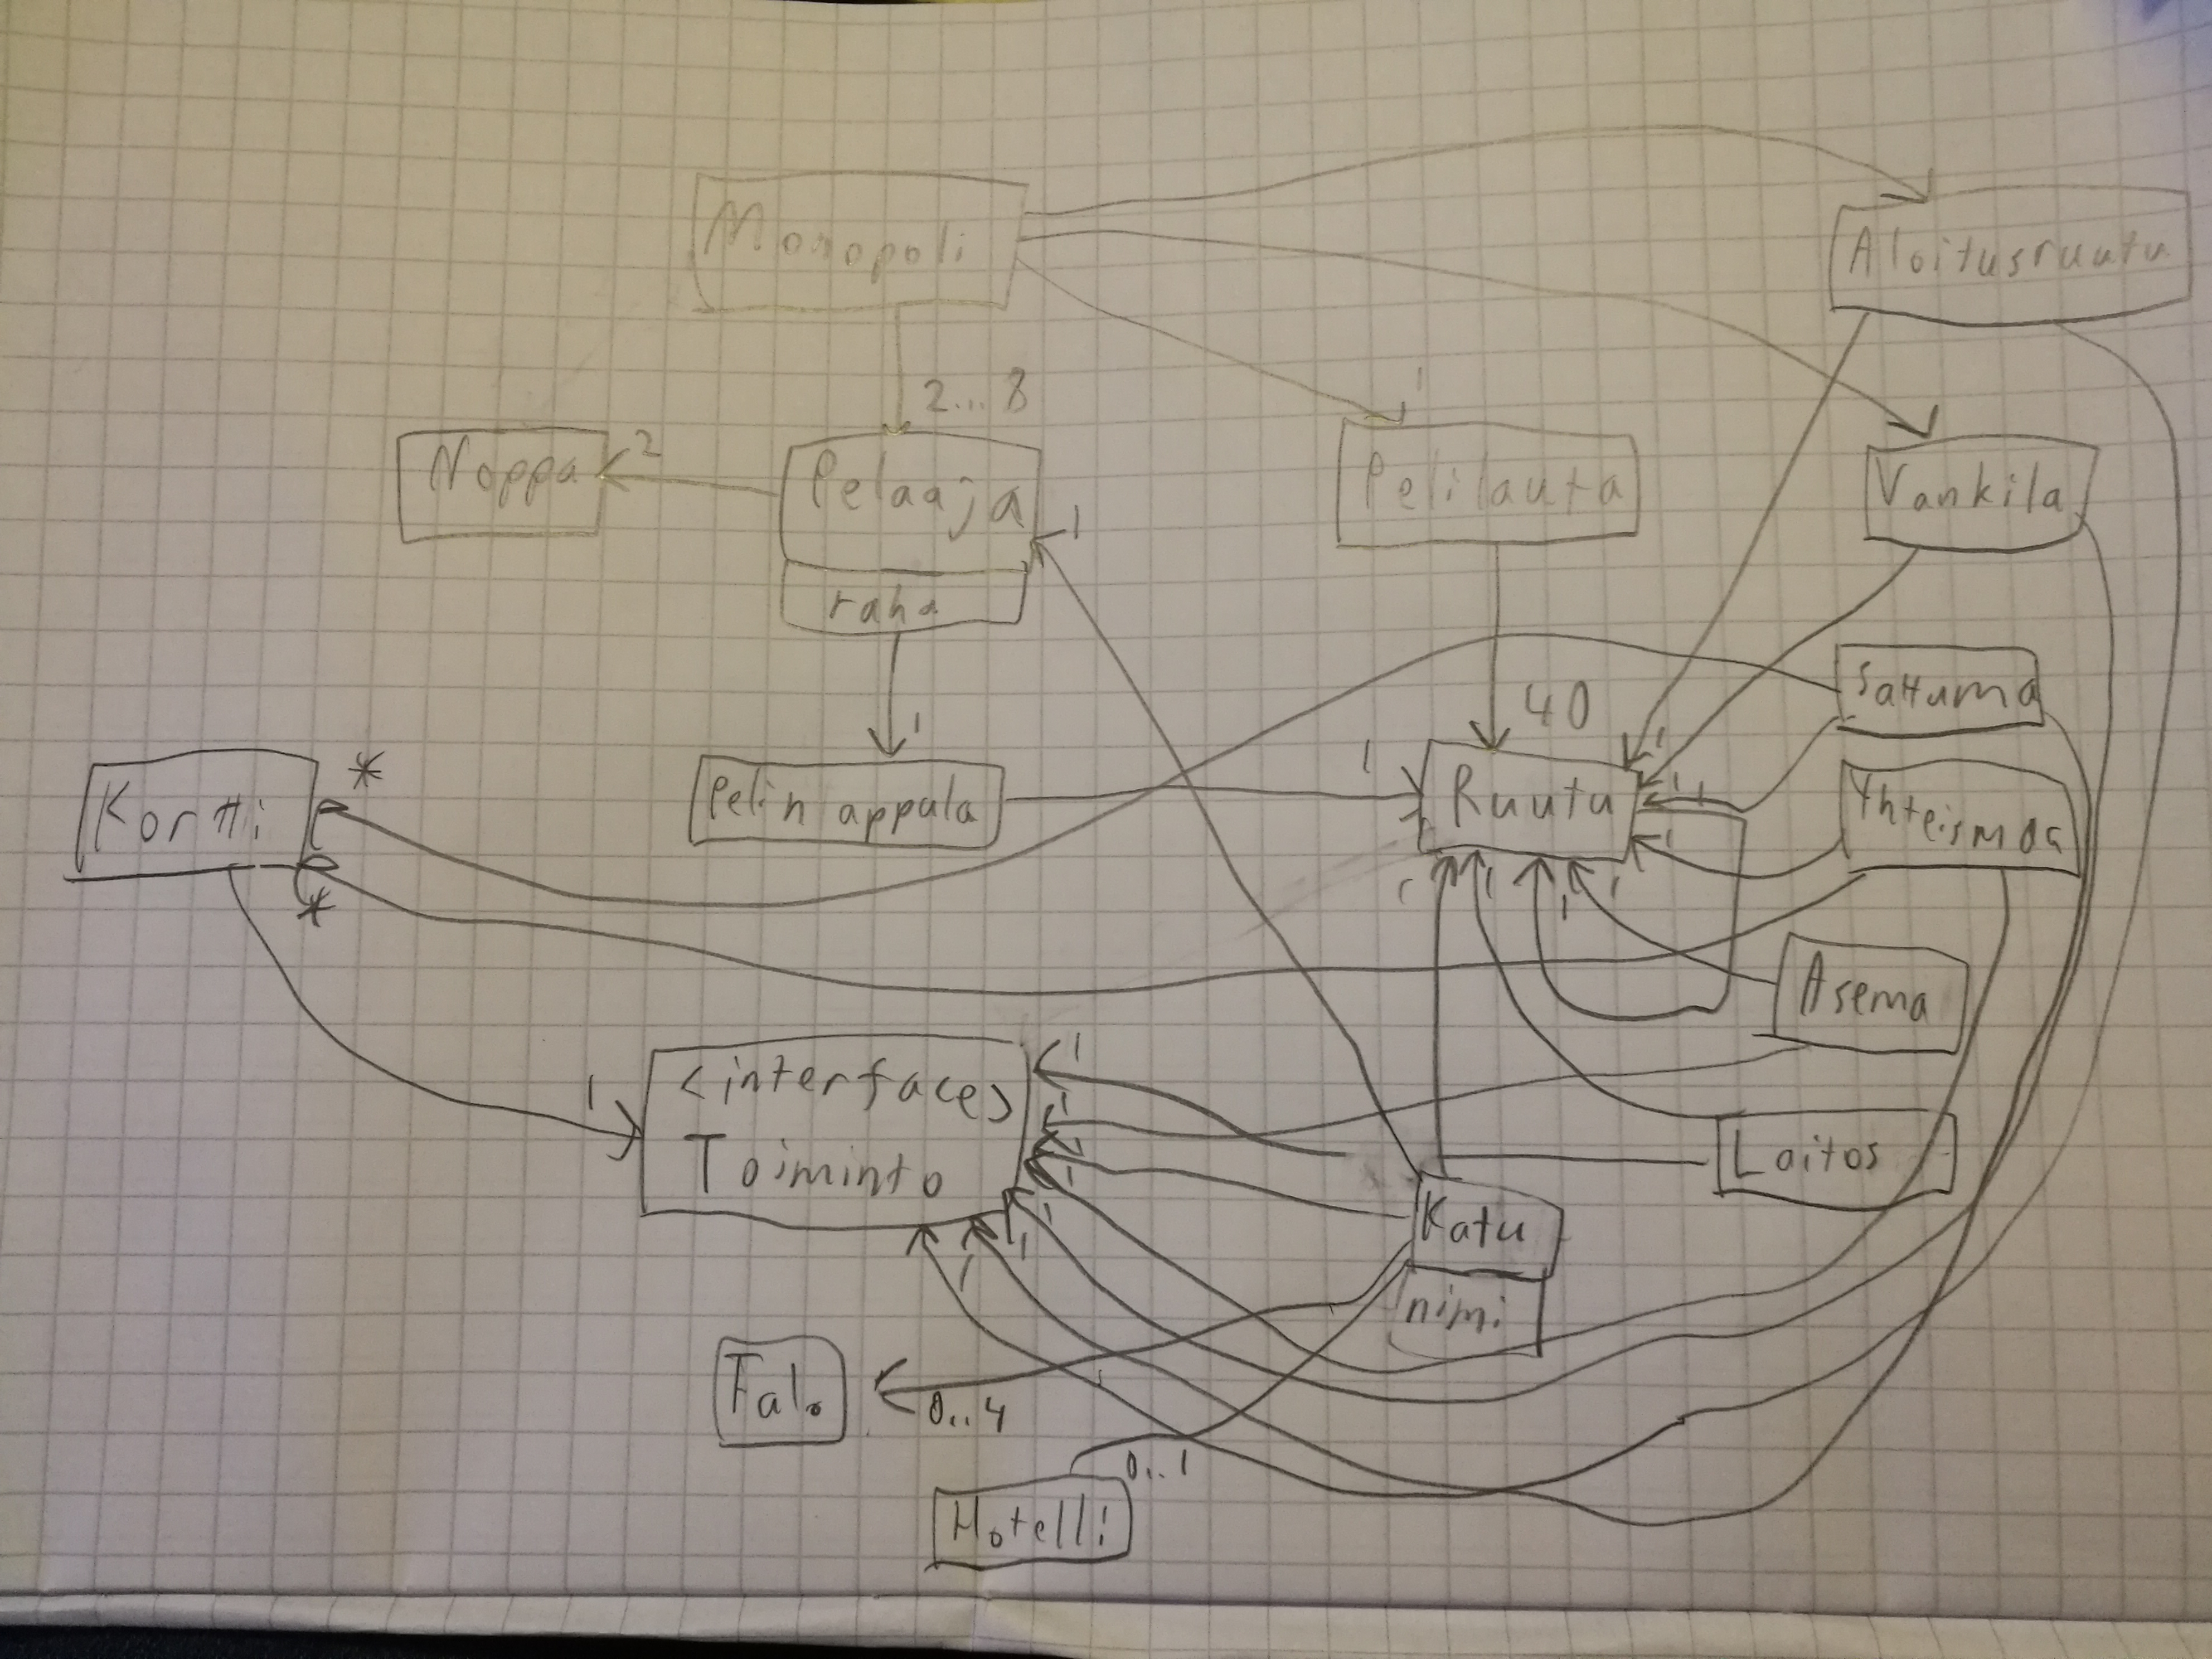 Monopoli
Aloitusruutu
2...8
1
Noppa
2
Pelaaja
1
Pelilauta
Vankila
raha
40
Sattuma
1
1
1
Kortti
*
Pelin appula
1
Ruutu
1
1
Yhteismaa
*
1
1
1
1
Asema
1
<interface>
1
1
Toiminto
1
1
1
1
1
Laitos
Katu
nimi
Talo
0..4
0..1
Hotelli